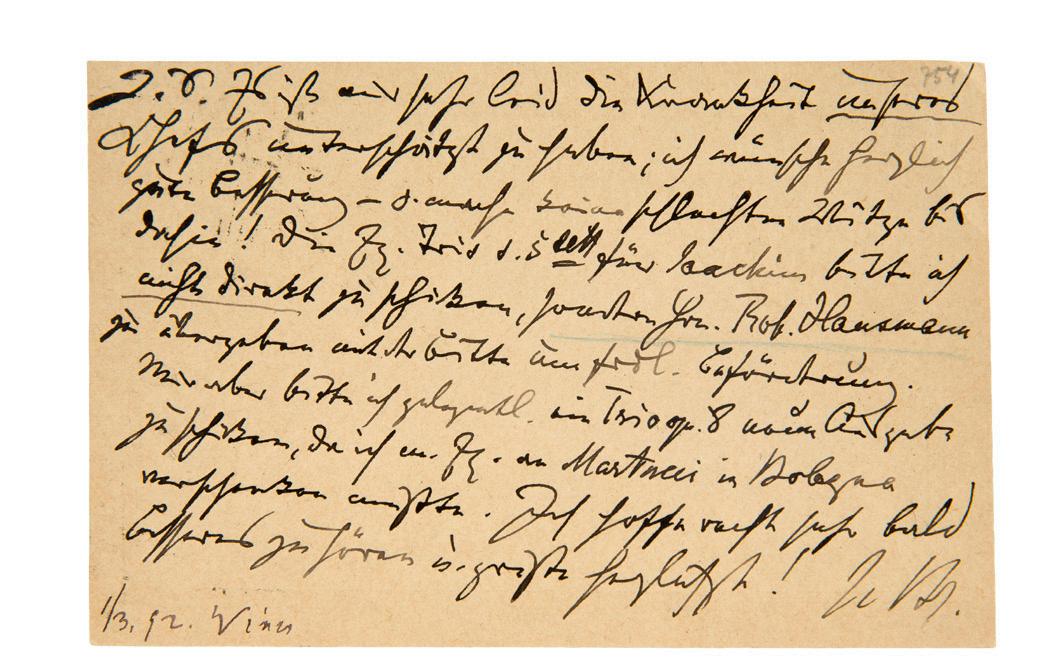 754
L. S. Es ist mir sehr leid die Krankheit unseres
Chefs unterschätzt zu haben; ich wünsche herzlich
gute Besserung – u. mache keine schlechten Witze bis
dahin! Die Ex. Trio u. 5tett für Joachim bitte ich
nicht direkt zu schicken, sondern Hrn. Prof. Hausmann
zu übergeben mit der Bitte um frdl. Beförderung.
Mir aber bitte ich gelegentl. ein Trio op. 8 neue Ausgabe
zu schicken, da ich m. Ex. an Martucci in Bologna
verschenken mußte. Ich hoffe recht sehr bald
Besseres zu hören u. grüße herzlichst! Ihr J. Br.
1/3. 92. Wien